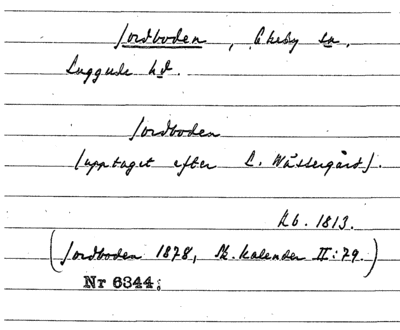 Jordboden, Ekeby sn.
Luggude hd.
Jordboden
(upptaget efter L. Wästergård).
Kb. 1813.
(Jordboden 1878, Sk. kalender II:79.)
Nr 6344: